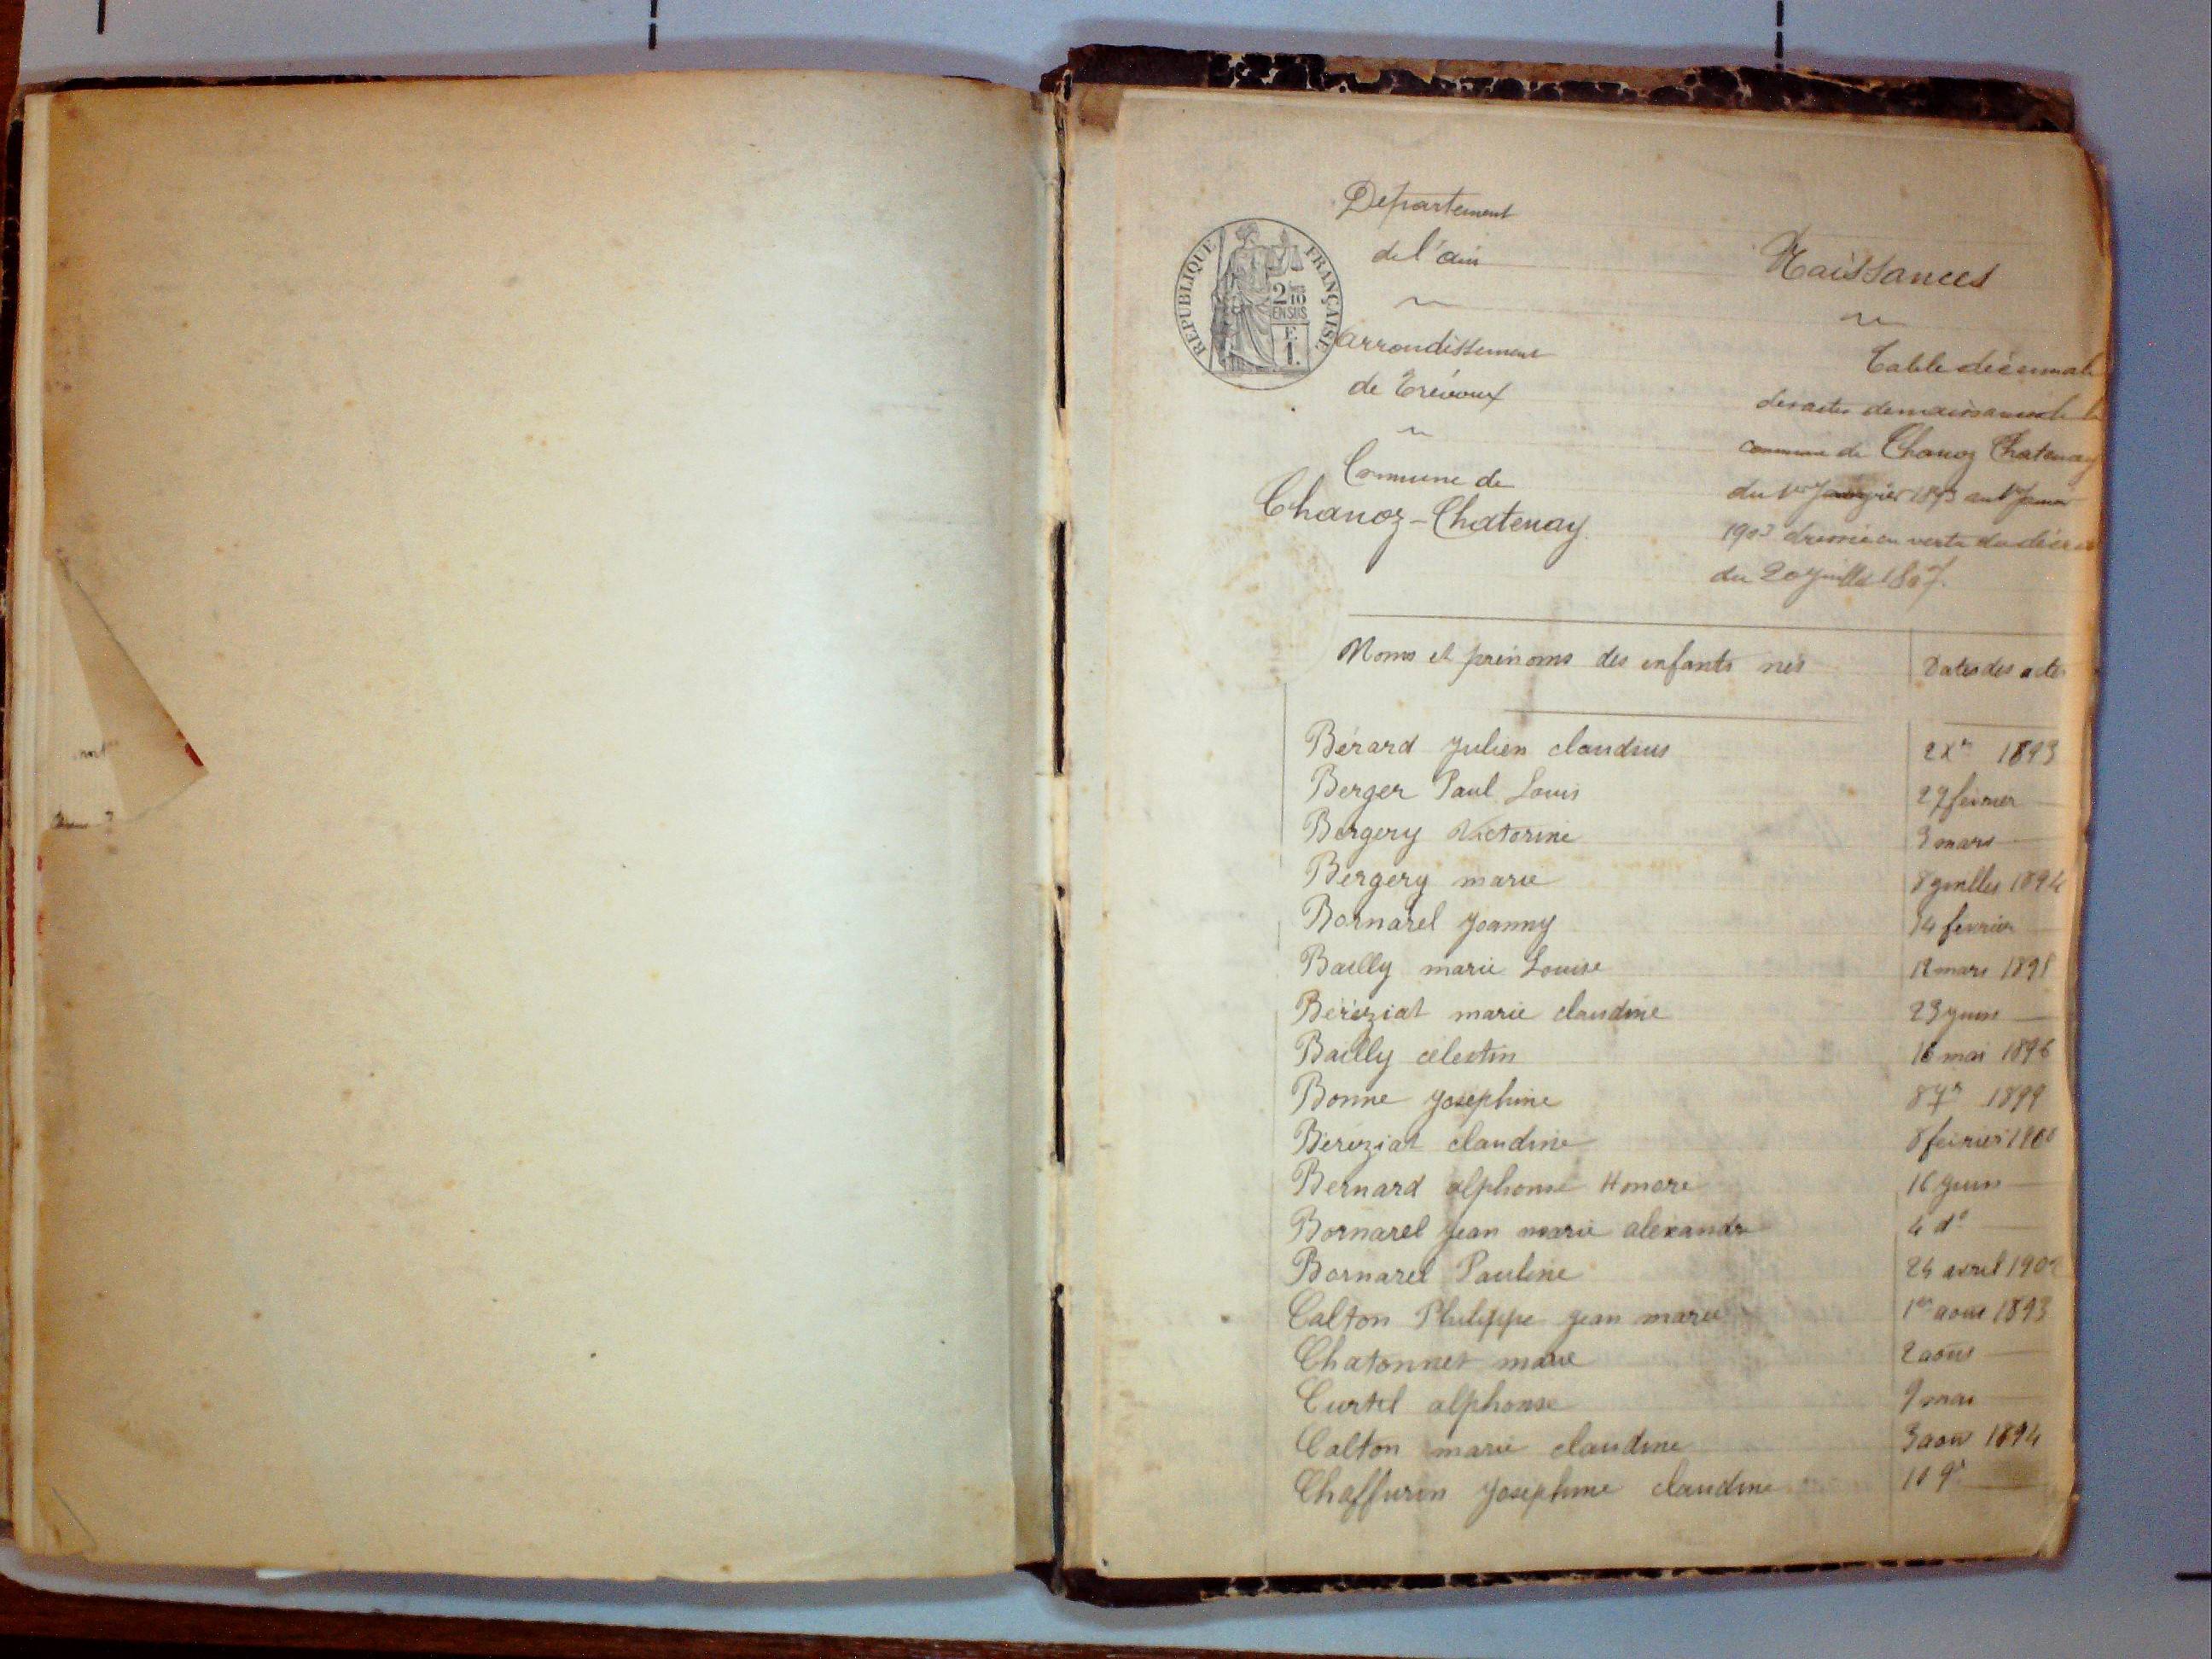 Département
de l'ain
RÉPUBLIQUE FRANÇAISE
2/10
EN SUS
F.
1.
arrondissement
de Trévoux
Commune de
Chanoz-Chatenay
Naissances
Table décennale
des actes de naissance de la
commune de Chanoz Chatenay
du 1er Janvier 1893 au 1er Janvier
1903 dressée en vertu du décret
du 20 juillet 1807.
Noms et prénoms des enfants nés Dates des actes
Bérard Julien claudius 2 Xre 1893
Berger Paul Louis 27 février
Bergery Victorine 3 mars
Bergery marie 8 juillet 1894
Bornarel Joanny 14 février
Bailly marie Louise 12 mars 1895
Béréziat marie claudine 23 juin
Bailly célestin 16 mai 1896
Bonne Joséphine 8 7re 1899
Béréziat claudine 8 février 1900
Bernard alphonse Honoré 16 Juin
Bornarel Jean marie alexandre 4 do
Bornarel Pauline avril
Calton Philippe Jean marie 1er aout 1893
Chatonnet marie 2 août
Curtil alphonse 9 mai
Calton marie claudine 3 aou 1894
Chaffurin Joséphine claudine